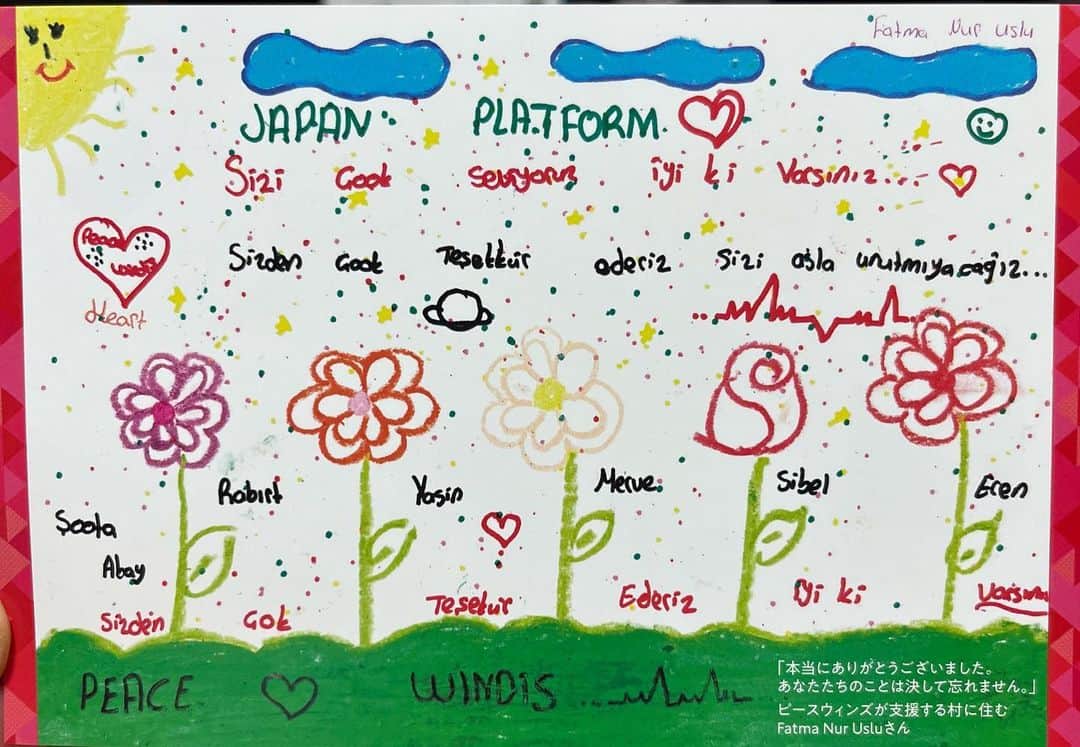 Fatma Nur Uslu
JAPAN PLATFORM
Sizi Çook seviyoruz iyi ki Varsınız...
Peace
windis
Heart
Sizden Çook Teşekkür ederiz sizi asla unutmıyacağız...
Robirt Yasin Merve Sibel Eren
Şoota
Abay
Sizden Çok Teşekür Ederiz iyi ki Varsınız
PEACE WINDIS
「本当にありがとうございました。
あなたたちのことは決して忘れません。」
ピースウィンズが支援する村に住む
Fatma Nur Usluさん